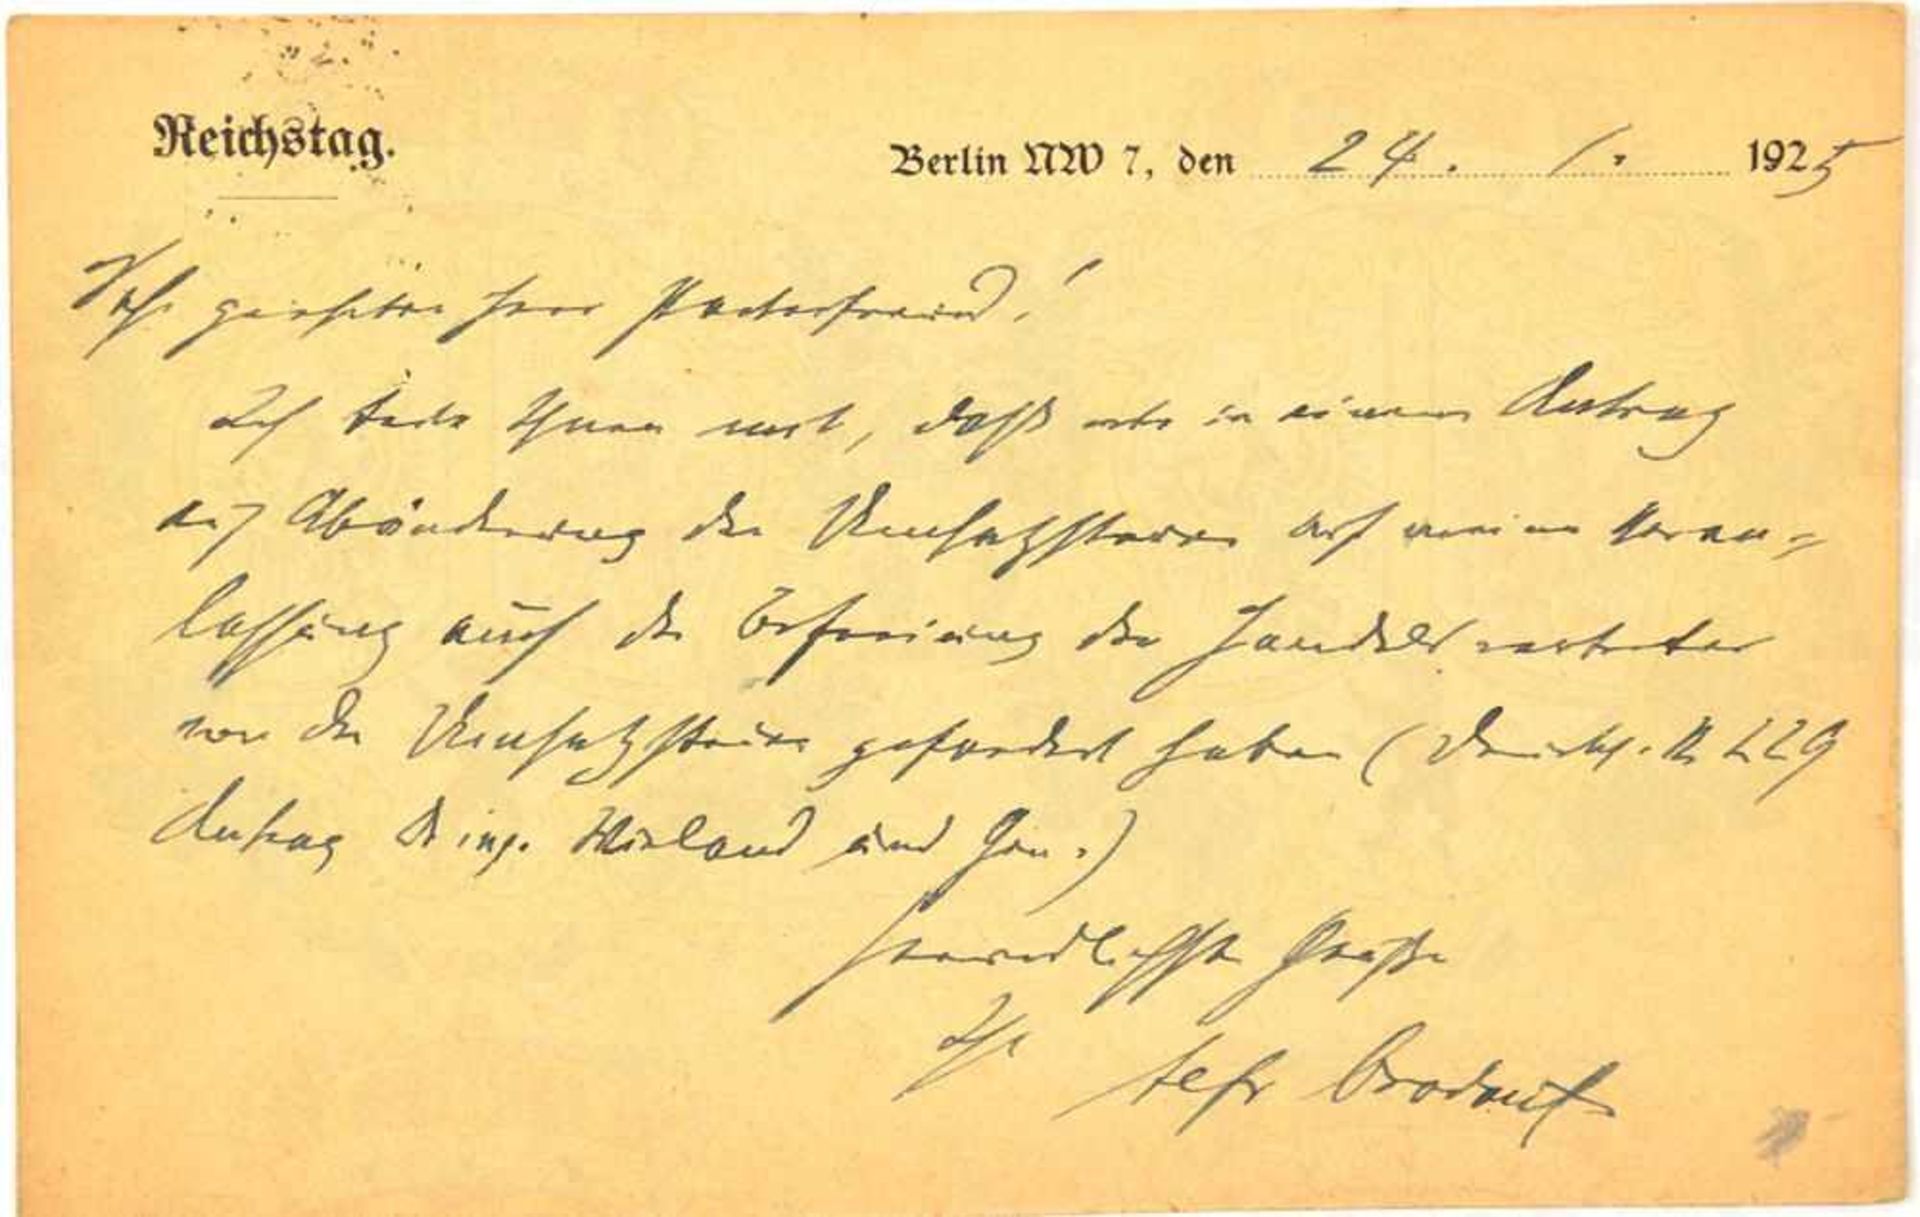 Reichstag.
Berlin NW 7, den 24. 1. 1925
Sehr geehrter Herr Parteifreund!
Ich teile Ihnen mit, daß wir in einem Antrag
auf Abänderung der Umsatzsteuer auf meine Veran-
lassung auch die Befreiung der Handelsvertreter
von der Umsatzsteuer gefordert haben (Drucks. N 229
Antrag Wieland und Gen.)
Freundlichste Grüße
Ihr